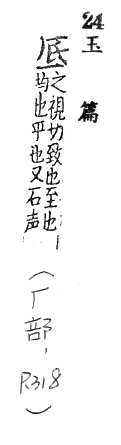 24 玉篇
厎
之視切致也至也
均也平也又石声
(厂部, P.318)